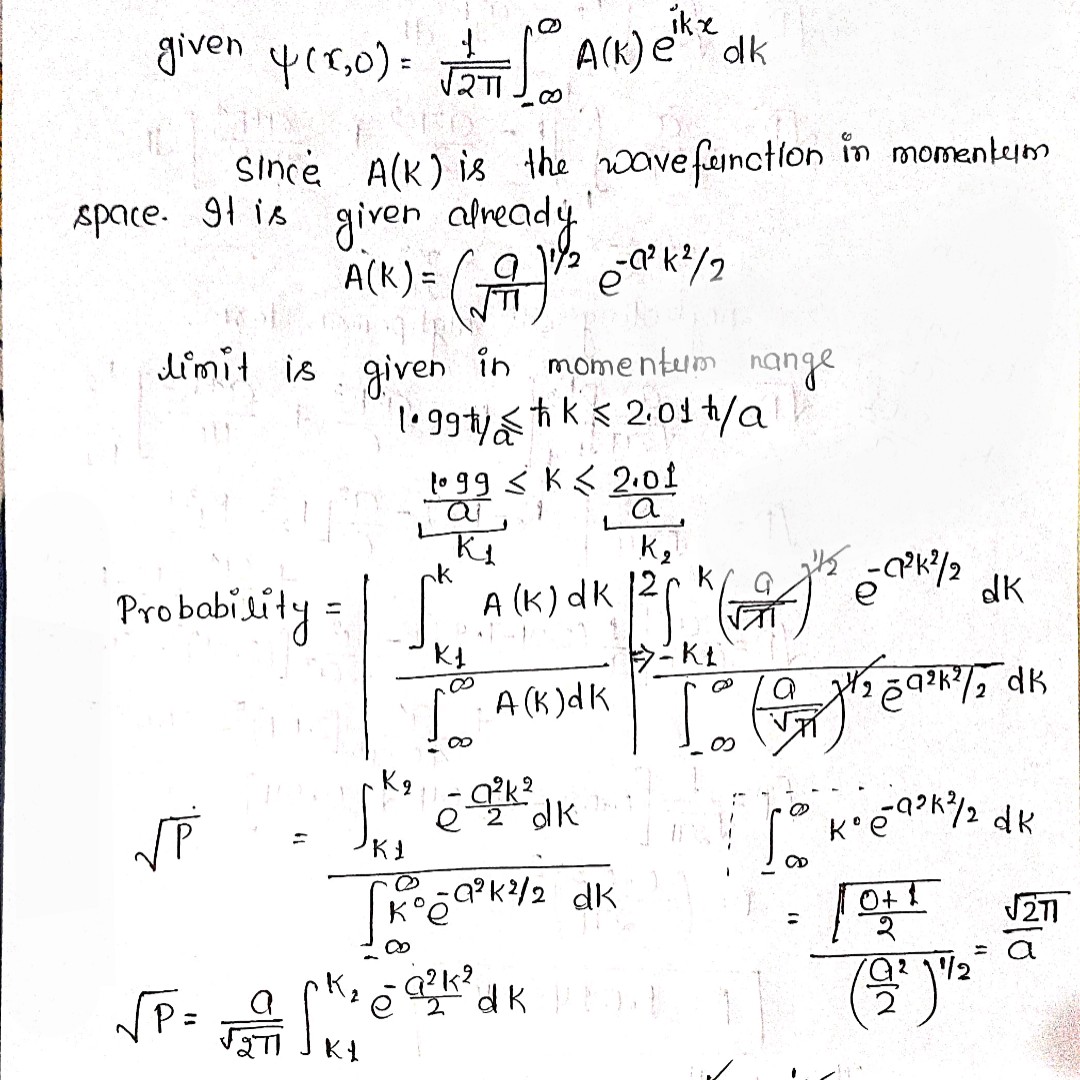 given ψ(x,0) = 1/√2π ∫_{-∞}^{∞} A(k) e^{ikx} dk
since A(K) is the wavefunction in momentum
space. It is given already
A(K) = (a/√π)^{1/2} e^{-a²k²/2}
limit is given in momentum range
1.99ħ/a ≤ ħk ≤ 2.01 ħ/a
1.99/a ≤ K ≤ 2.01/a
K1 K2
Probability = | ∫_{K1}^{K} A(K) dK / ∫_{-∞}^{∞} A(K) dK |² ⇒ ∫_{-K1}^{K} (a/√π)^{1/2} e^{-a²k²/2} dK / ∫_{-∞}^{∞} (a/√π)^{1/2} e^{-a²k²/2} dK
√P = ∫_{K1}^{K2} e^{-a²k²/2} dK / ∫_{-∞}^{∞} K⁰ e^{-a²k²/2} dK
∫_{-∞}^{∞} K⁰ e^{-a²k²/2} dK
= Γ(0+1/2) / (a²/2)^{1/2} = √2π/a
√P = a/√2π ∫_{K1}^{K2} e^{-a²k²/2} dK